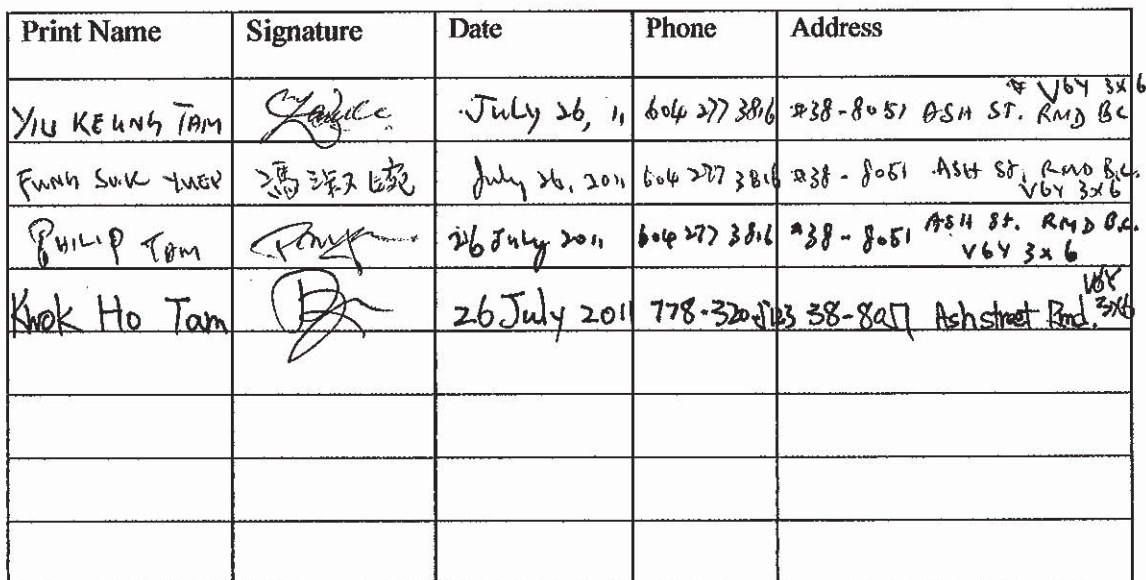 Print Name Signature Date Phone Address
V6Y 3X6
YIU KEUNG TAM July 26, 11 604 277 3816 #38-8051 ASH ST. RMD BC
FUNG SUK YUEN 馮淑 July 26, 2011 604 277 3816 #38 - 8051 ASH ST, RMD B.C.
V6Y 3X6
PHILIP TAM 26 July 2011 604 277 3816 #38 - 8051 ASH ST. RMD B.C.
V6Y 3X6
V6Y
Kwok Ho Tam 26 July 2011 778-320- 38-8051 Ash street Rmd. 3X6